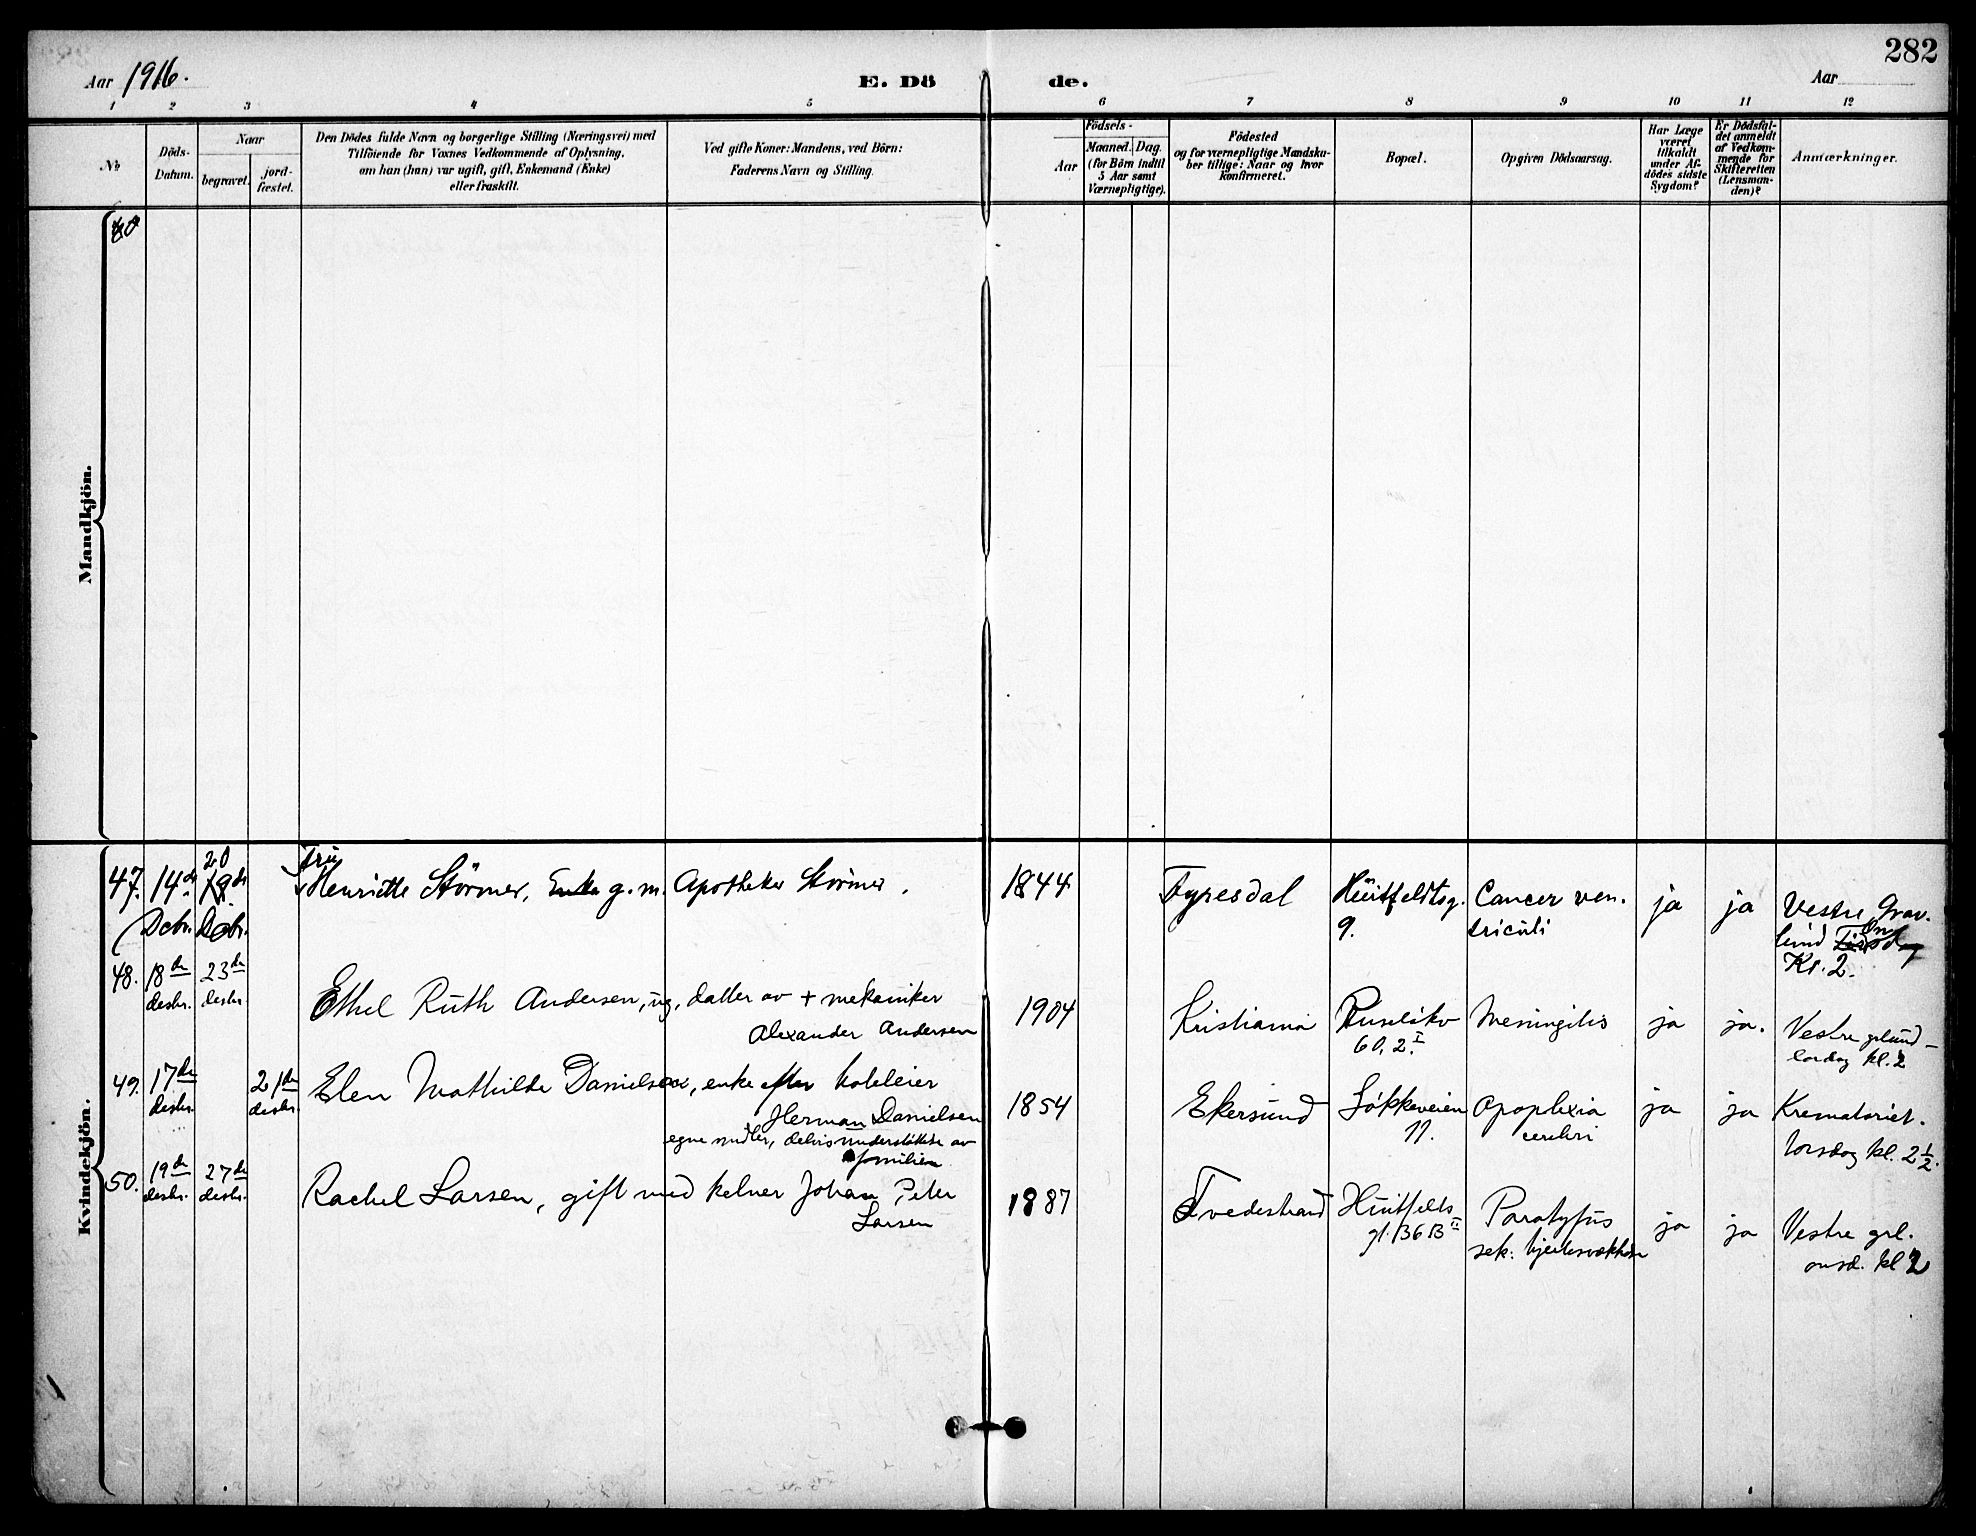 282
Aar 1916.
E. Dö de.
Aar
1 2 3 4 5 6 7 8 9 10 11 12
No
Döds-
Datum.
Naar
begravet.
jord-
fæstet.
Den Dödes fulde Navn og borgerlige Stilling (Næringsvei) med
Tilföiende for Voxnes Vedkommende af Oplysning,
om han (hun) var ugift, gift, Enkemand (Enke)
eller fraskilt.
Ved gifte Koner: Mandens, ved Börn:
Faderens Navn og Stilling.
Födsels-
Aar
Maaned. Dag.
(for Börn indtil
5 Aar samt
Værnepligtige).
Födested
og for værnepligtige Mandska-
ber tillige: Naar og hvor
konfirmeret.
Bopæl.
Opgiven Dödsaarsag.
Har Læge
været
tilkaldt
under Af-
dödes sidste
Sygdom?
Er Dödsfal-
det anmeldt
af Vedkom-
mende for
Skifteretten
(Lensman-
den)?
Anmærkninger.
Mandkjön.
Kvindekjön.
47. 14de Decbr. 20 Decbr.
Fru
Henriette Störmer, Enke g. m. Apotheker Störmer.
1844
Tyresdal
Hüitfeldtsg.
9.
Cancer ven-
triculi
ja
ja
Vestre Grav-
lund Ons dag
Kl. 2.
48. 18de desbr. 23de desbr
Ethel Ruth Andersen, ug, datter av + mekaniker
Alexander Andersen
1904
Kristiania
Ruselökv
60, 2. I
Meningitis
ja
ja.
Vestre grlund-
lordag kl. 2
49. 17de desbr. 21de desbr.
Elen Mathilde Danielsen, enke efter
Herman Danielsen
egne midler, delvis understöttelse av
familien
1854
Ekersund
Lökkeveien
11.
Apoplexia
cerebri
ja
ja
Krematoriet.
torsdag kl. 2 1/2.
50. 19de desbr. 27de desbr.
Rachel Larsen, gift med kelner Johan Peter
Larsen
1887
Tvedestrand
Huitfelts
gt. 36 B II
Paratyfus
sek. hjertesvækkelse
ja
ja
Vestre grl.
onsd. kl 2